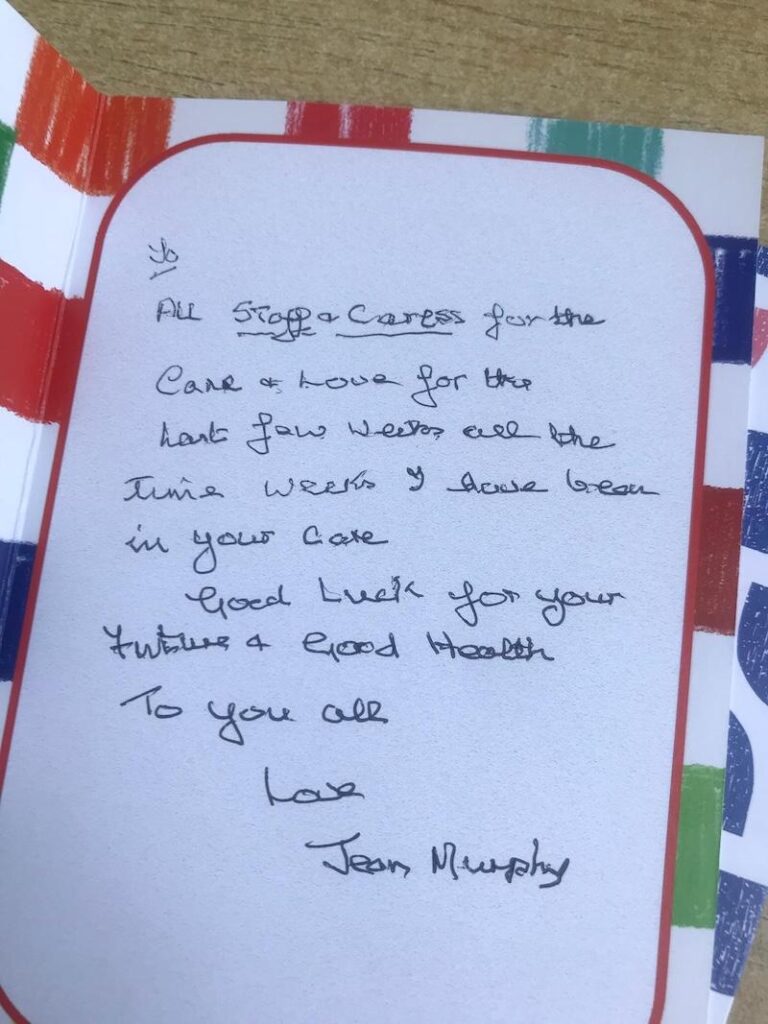 To
All Staff & Caress for the
Care & Love for the
Last few weeks all the
Time weeks I have been
in your Care
Good Luck for your
Future & Good Health
To you all
Love
Jean Murphy